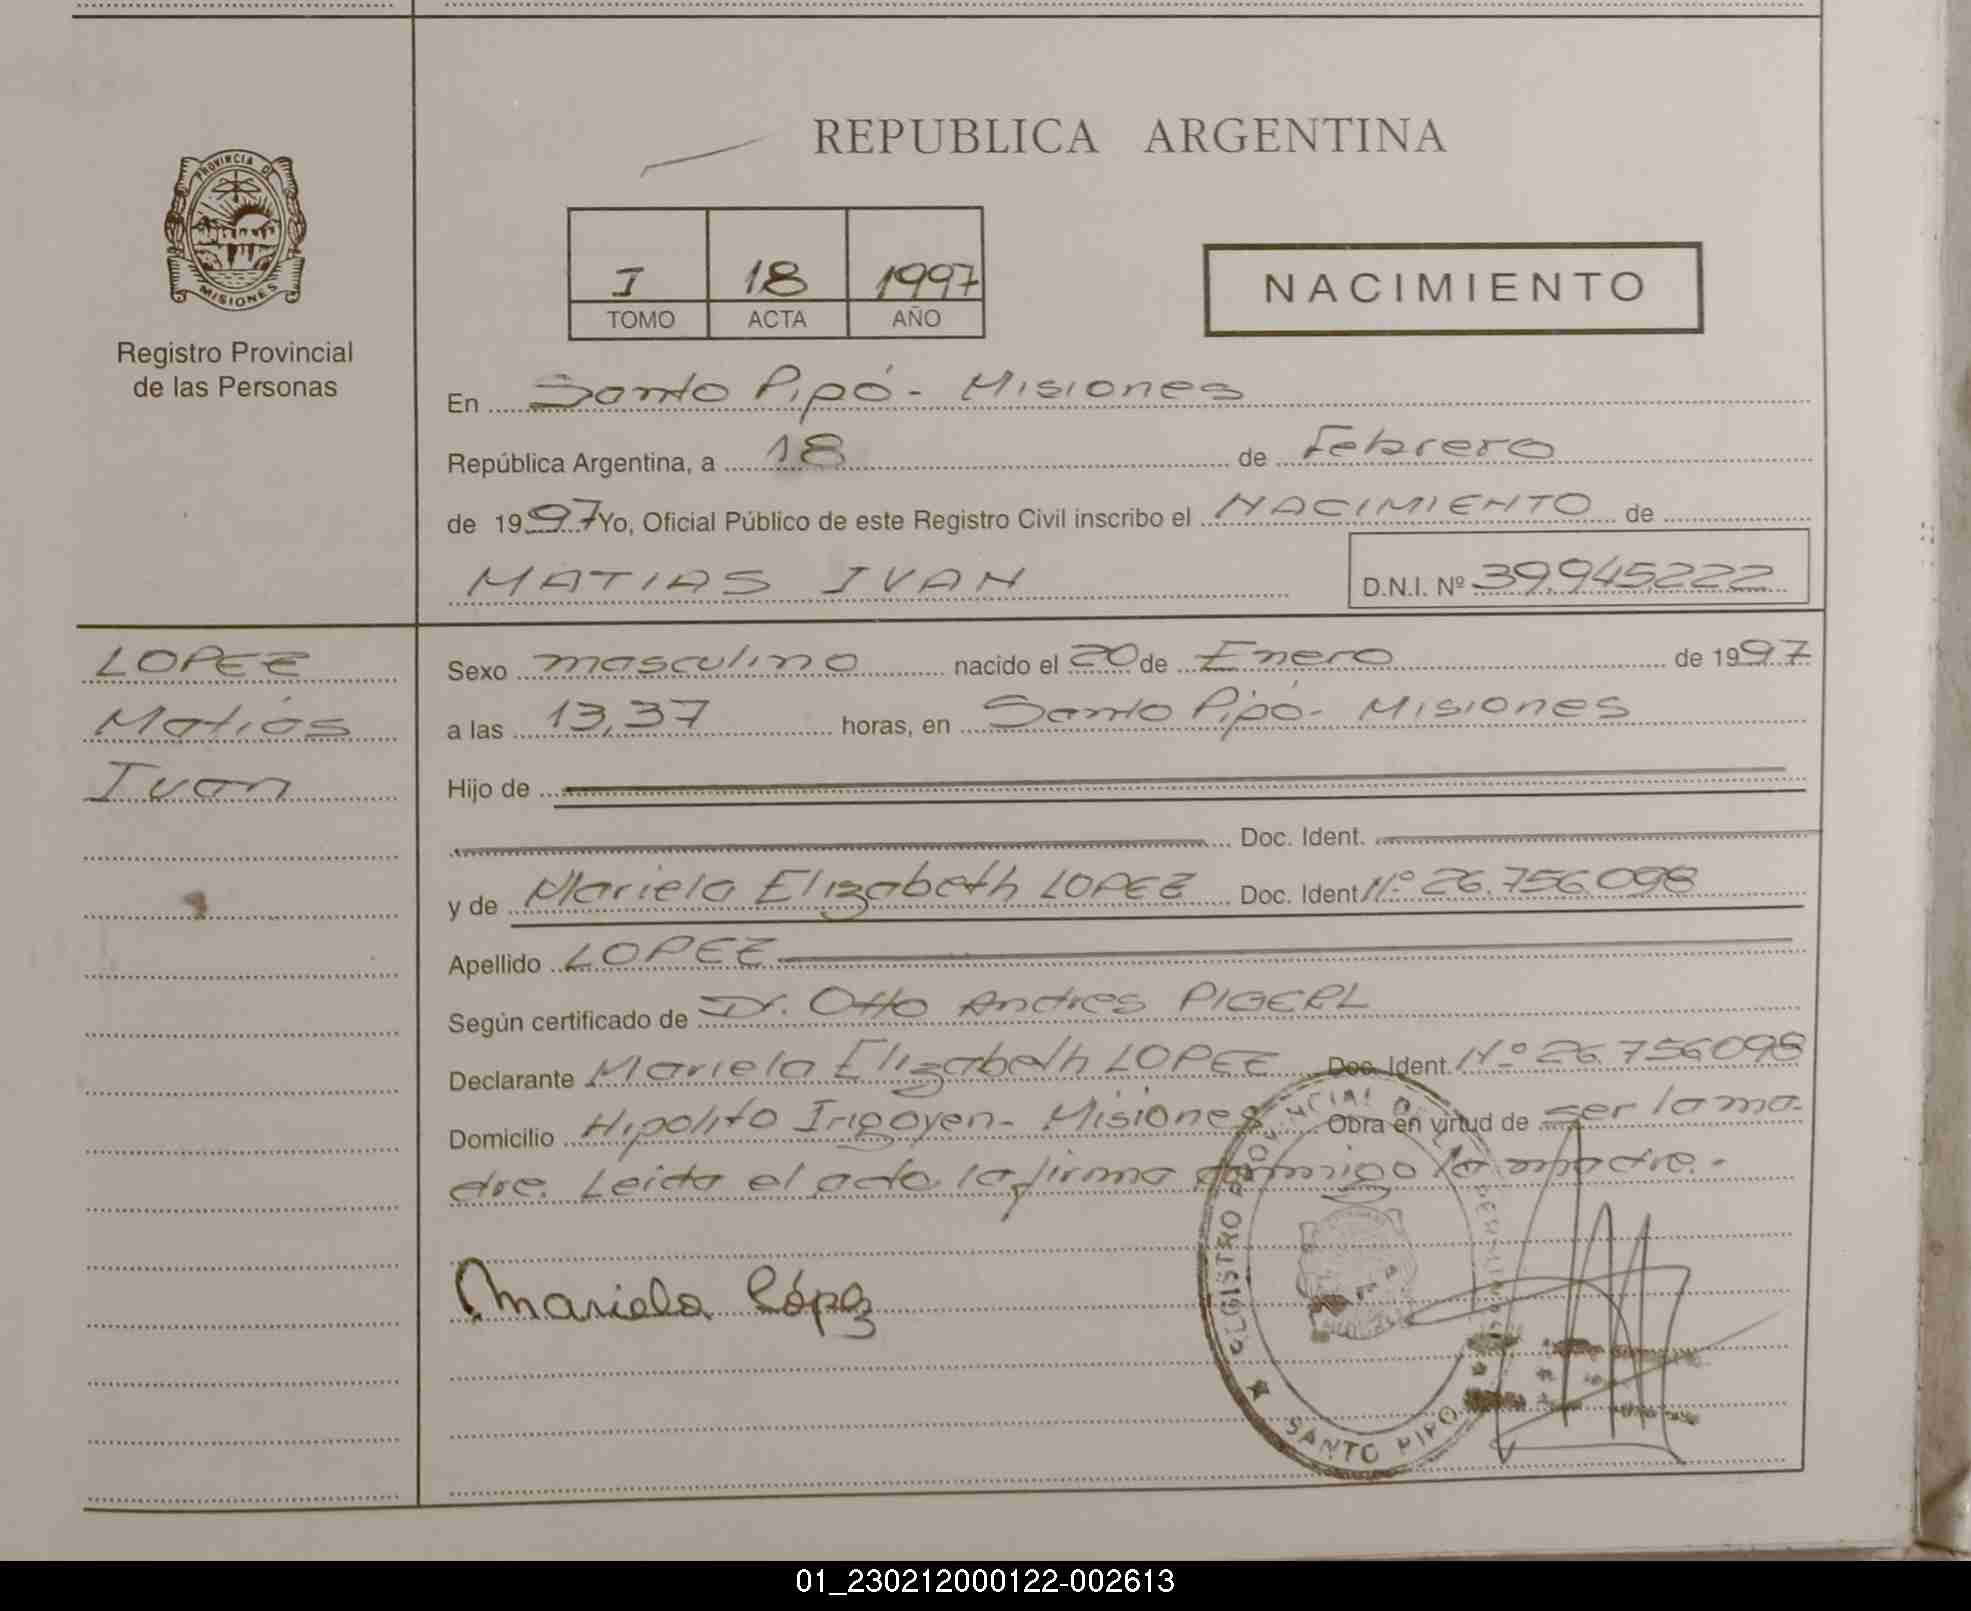 PROVINCIA DE
MISIONES
Registro Provincial
de las Personas
REPUBLICA ARGENTINA
I 18 1997
TOMO ACTA AÑO
NACIMIENTO
En Santo Pipó - Misiones
República Argentina, a 18 de Febrero
de 1997 Yo, Oficial Público de este Registro Civil inscribo el NACIMIENTO de
MATIAS IVAN D.N.I. Nº 39.945.222
LOPEZ
Matias
Ivan
Sexo masculino nacido el 20 de Enero de 1997
a las 13,37 horas, en Santo Pipó - Misiones
Hijo de
Doc. Ident.
y de Mariela Elizabeth LOPEZ Doc. Ident Nº 26.756.098
Apellido LOPEZ
Según certificado de Dr. Otto Andres PIGERL
Declarante Mariela Elizabeth LOPEZ Doc. Ident. Nº 26.756098
Domicilio Hipolito Irigoyen - Misiones Obra en virtud de ser la ma-
dre. Leida el acta la firma conmigo la madre.-
Mariela López
REGISTRO PROVINCIAL DE LAS PERSONAS
SANTO PIPO
01_230212000122-002613